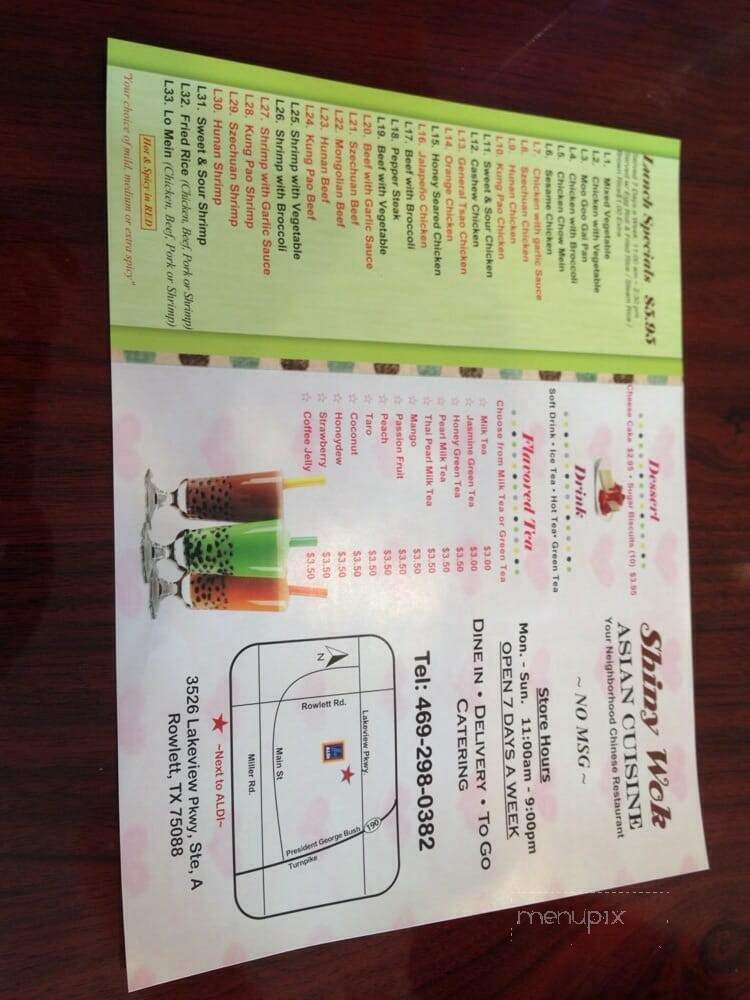 Lunch Specials $5.95
Served 7 Days a Week 11:00 am - 2:30 pm
Served w/ Egg Roll & Fried Rice / Steam Rice /
L1. Mixed Vegetable
L2. Chicken with Vegetable
L3. Moo Goo Gai Pan
L4. Chicken with Broccoli
L5. Chicken Chow Mein
L6. Sesame Chicken
L7. Chicken with garlic Sauce
L8. Szechuan Chicken
L9. Hunan Chicken
L10. Kung Pao Chicken
L11. Sweet & Sour Chicken
L12. Cashew Chicken
L13. General Tso Chicken
L14. Orange Chicken
L15. Honey Seared Chicken
L16. Jalapeño Chicken
L17. Beef with Broccoli
L18. Pepper Steak
L19. Beef with Vegetable
L20. Beef with Garlic Sauce
L21. Szechuan Beef
L22. Mongolian Beef
L23. Hunan Beef
L24. Kung Pao Beef
L25. Shrimp with Vegetable
L26. Shrimp with Broccoli
L27. Shrimp with Garlic Sauce
L28. Kung Pao Shrimp
L29. Szechuan Shrimp
L30. Hunan Shrimp
L31. Sweet & Sour Shrimp
L32. Fried Rice (Chicken, Beef, Pork or Shrimp)
L33. Lo Mein (Chicken, Beef, Pork or Shrimp)
Hot & Spicy in RED
"Your choice of mild, medium or extra spicy."
Dessert
Cheese Cake $2.95 • Sugar Biscuits (10) $3.95
Drink
Soft Drink • Ice Tea • Hot Tea • Green Tea
Flavored Tea
Choose from Milk Tea or Green Tea
☆ Milk Tea $3.00
☆ Jasmine Green Tea $3.00
☆ Honey Green Tea $3.50
☆ Pearl Milk Tea $3.50
☆ Thai Pearl Milk Tea $3.50
☆ Mango $3.50
☆ Passion Fruit $3.50
☆ Peach $3.50
☆ Taro $3.50
☆ Coconut $3.50
☆ Honeydew $3.50
☆ Strawberry $3.50
☆ Coffee Jelly $3.50
Shiny Wok
ASIAN CUISINE
Your Neighborhood Chinese Restaurant
~ NO MSG ~
Store Hours
Mon. - Sun. 11:00am - 9:00pm
OPEN 7 DAYS A WEEK
DINE IN • DELIVERY • TO GO
CATERING
Tel: 469-298-0382
N
Lakeview Pkwy.
190
Rowlett Rd.
ALDI
Main St
President George Bush
Turnpike
Miller Rd.
★ ~Next to ALDI~
3526 Lakeview Pkwy, Ste, A
Rowlett, TX 75088
menupix